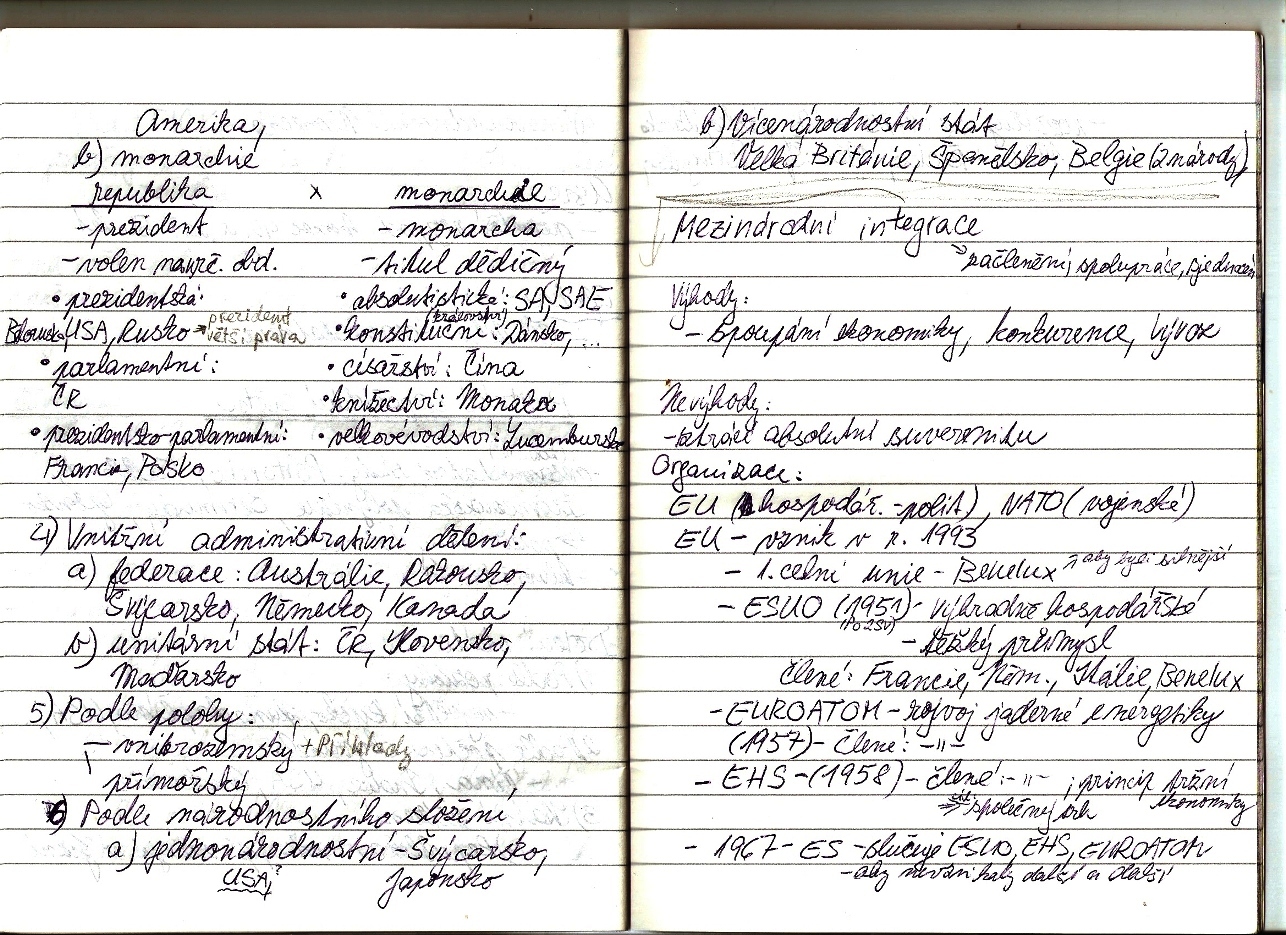 Amerika,
b) monarchie
republika x monarchie
- prezident - monarcha
- volen na urč. obd. - titul dědičný
• prezidentská: • absolutistická: SA, SAE
Bělorusko, USA, Rusko → prezident větší práva • konstituční: (království) Dánsko, ...
• parlamentní: • císařství: Čína
ČR • knížectví: Monako
• prezidentsko-parlamentní: • velkovévodství: Lucembursko
Francie, Polsko
4) Vnitřní administrativní dělení:
a) federace: Austrálie, Rakousko,
Švýcarsko, Německo, Kanada
b) unitární stát: ČR, Slovensko,
Maďarsko
5) Podle polohy:
- vnitrozemský + Příklady
přímořský
6) Podle národnostního složení
a) jednonárodnostní - Švýcarsko,
USA? Japonsko
b) Vícenárodnostní stát
Velká Británie, Španělsko, Belgie (2 národy)
Mezinárodní integrace
začlenění, spolupráce, sjednocení
Výhody:
- stoupání ekonomiky, konkurence, vývoz
Nevýhody:
- ztrácí absolutní suverenitu
Organizace:
EU (hospodář. - polit), NATO (vojenské)
EU - vznik v r. 1993
- 1. celní unie - Benelux → aby byli silnější
- ESUO (1951) - výhradně hospodářské
(Po 2SV) - těžký průmysl
člené: Francie, Něm., Itálie, Benelux
- EUROATOM - rozvoj jaderné energetiky
(1957) - člené: -"-
- EHS - (1958) - člené: -"- ; princip tržní
cíl: společnej trh ekonomiky
- 1967 - ES - slučuje ESUO, EHS, EUROATOM
- aby nevznikaly další a další